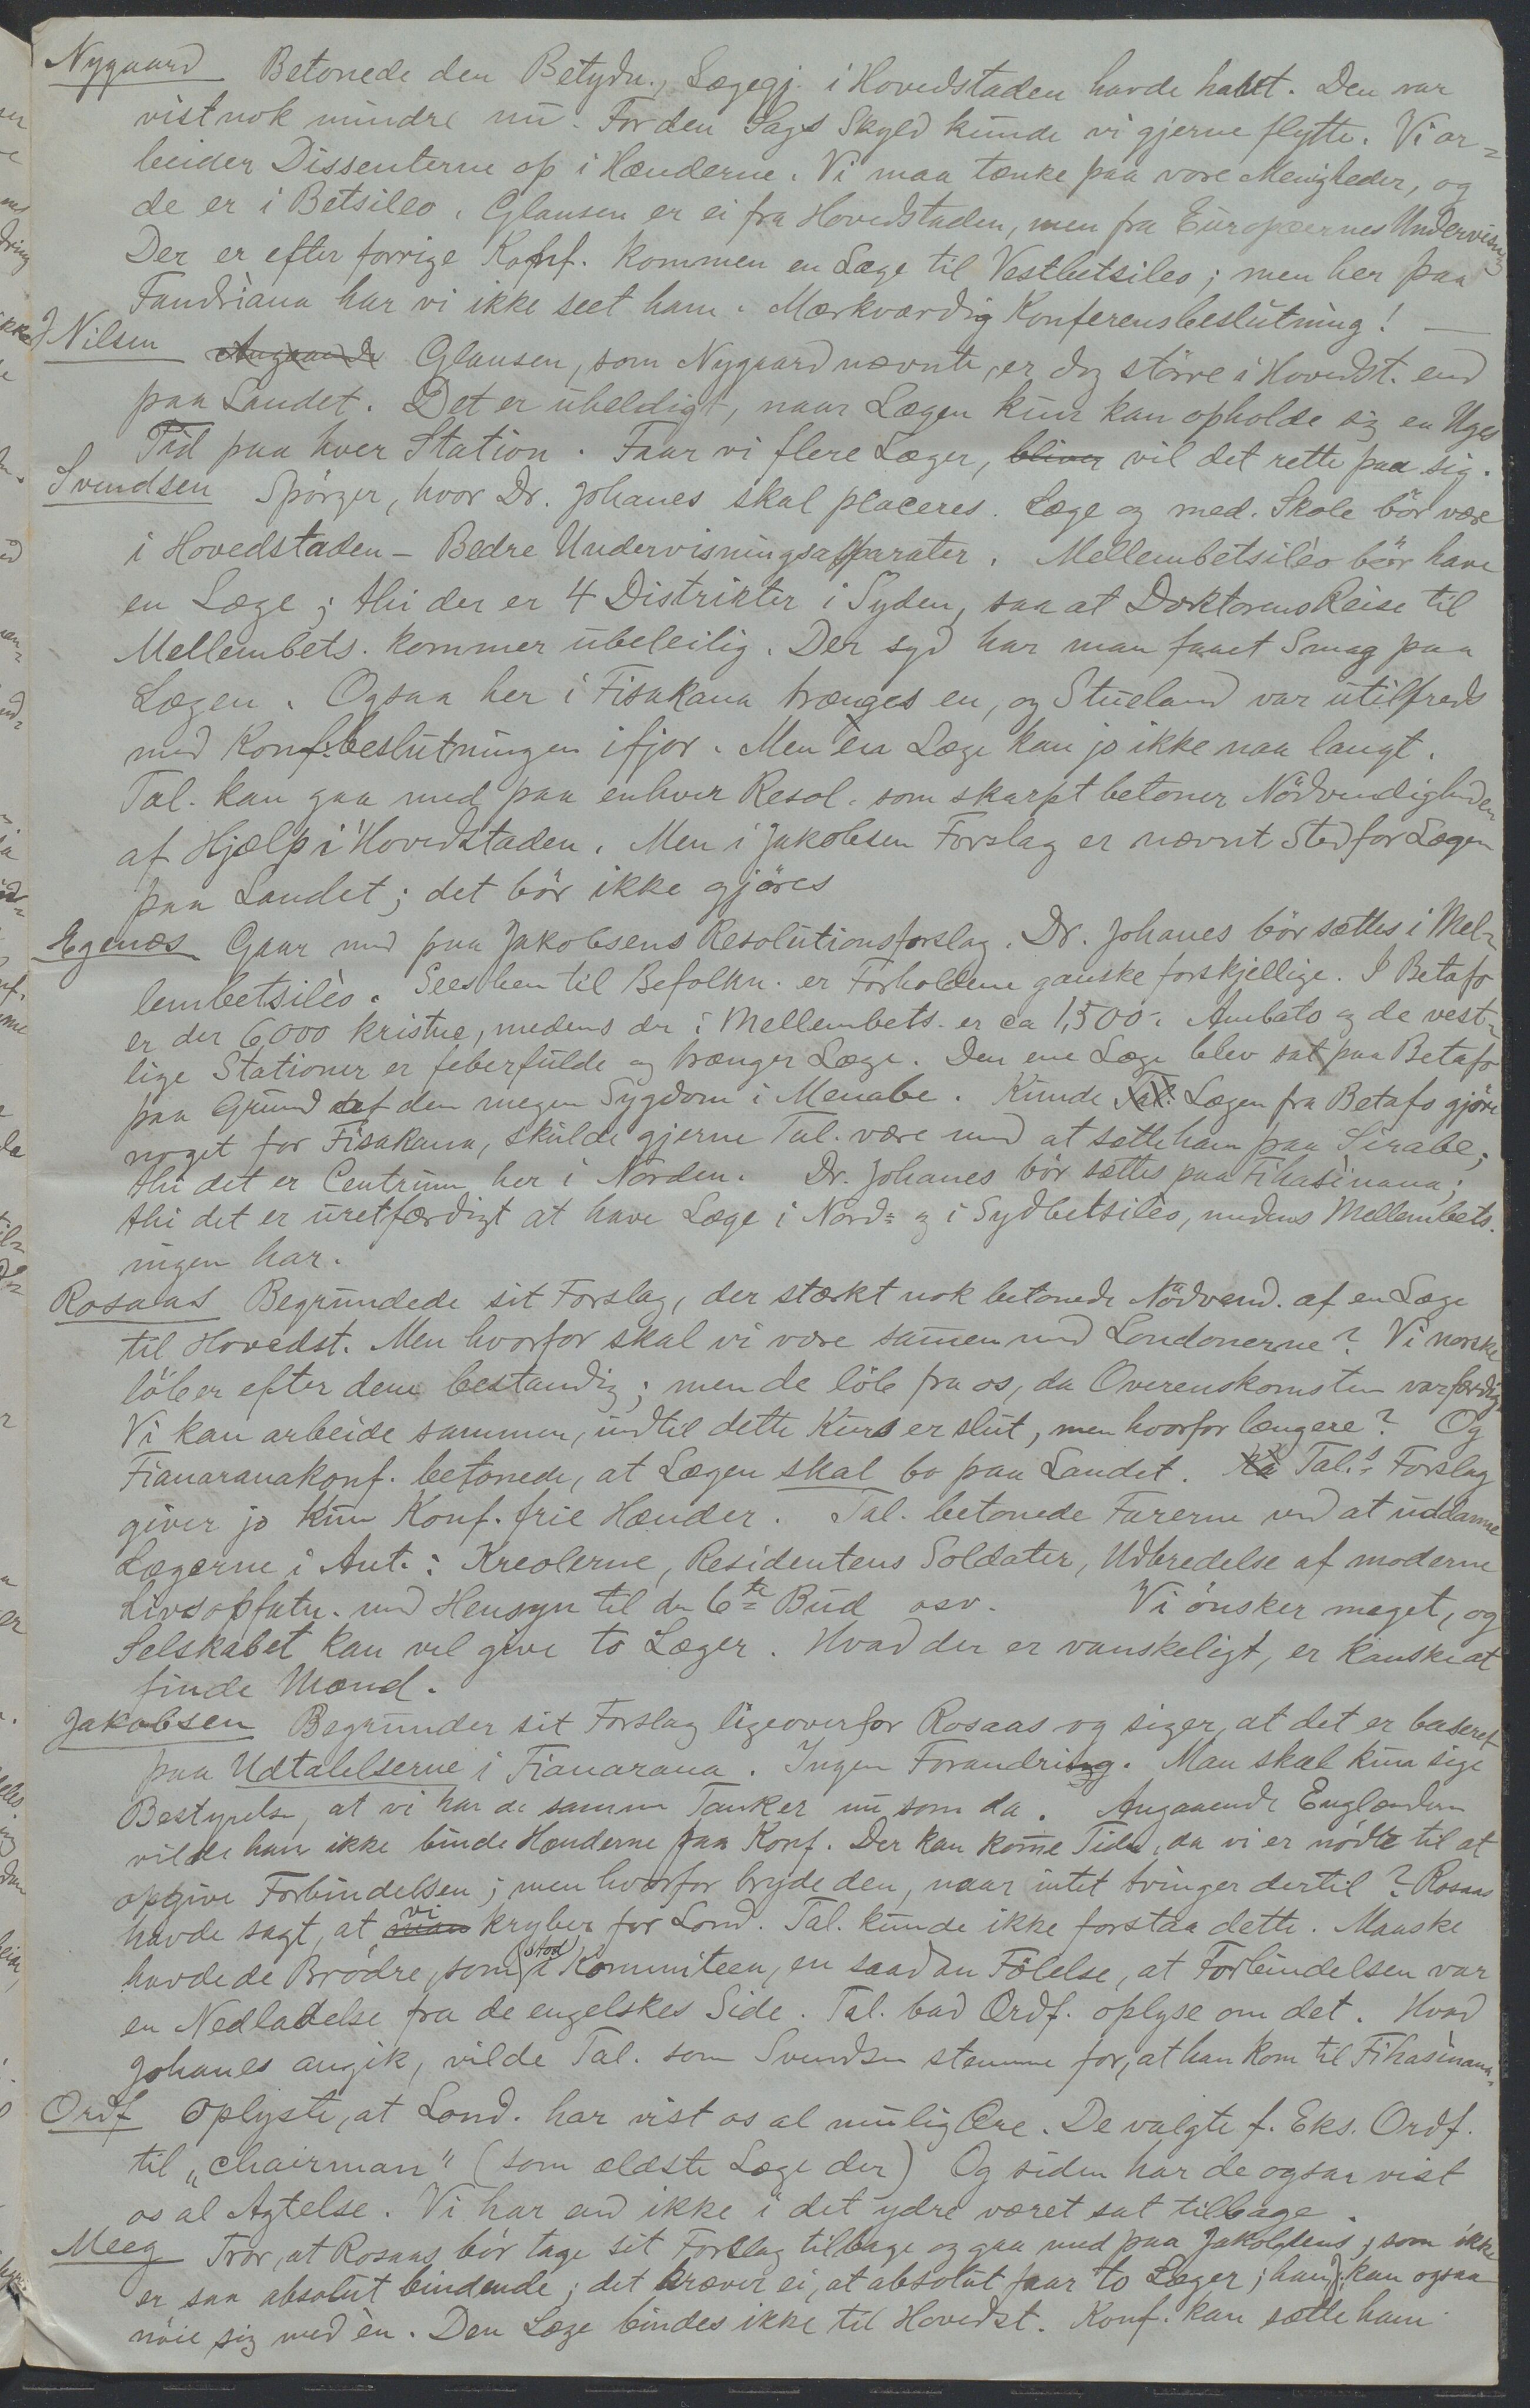 Nygaard Betonede den Betydn., Lægegj. i Hovedstaden havde havt. Den var
vistnok mindre nu. For den Sags Skyld kunde vi gjerne flytte. Vi ar=
beider Dissenterne op i Hænderne. Vi maa tænke paa vore Menigheder, og
de er i Betsileo. Glansen er ei fra Hovedstaden, men fra Europæernes Undervisng
Der er efter forrige Konf. kommen en Læge til Vestbetsileo; men her paa
Fandriana har vi ikke seet ham. Mærkværdig Konferensbeslutning! —
J Nilsen Angaaende Glansen, som Nygaard nævnte, er dog större i Hovedst. end
paa Landet. Det er uheldigt, naar Lægen kun kan opholde sig en Uges
Tid paa hver Station. Faar vi flere Læger, bliver vil det rette paa sig.
Svendsen Spörger, hvor Dr. Johanes skal placeres. Læge og med. Skole bör være
i Hovedstaden – Bedre Undervisningsapparater. Mellembetsileo bör have
en Læge; thi der er 4 Distrikter i Syden, saa at Doktorens Reise til
Mellembets. kommer ubeleilig. Der syd har man faaet Smag paa
Lægen. Ogsaa her i Fisakana trænges en, og Stueland var utilfreds
med Konf.beslutningen ifjor. Men en Læge kan jo ikke naa langt.
Tal. kan gaa med paa enhver Resol. som skarpt betoner Nödvendigheden
af Hjælp i Hovedstaden. Men i Jakobsen Forslag er nævnt Sted for Lægen
paa Landet; det bör ikke gjöres
Egenæs Gaar med paa Jakobsens Resolutionsforslag. Dr. Johanes bör sættes i Mel=
lembetsileo. Sees hen til Befolkn. er Forholdene ganske forskjellige. I Betafo
er der 6,000 kristne, medens der i Mellembets. er ca 1,500. Ambato og de vest=
lige Stationer er feberfulde og trænger Læge. Den ene Læge blev sat paa Betafo
paa Grund af den megen Sygdom i Menabe. Kunde Tal. Lægen fra Betafo gjöre
noget for Fisakana, skulde gjerne Tal. være med at sætte ham paa Sirabe;
thi det er Centrum her i Norden. Dr. Johanes bör sættes paa Fihasinana;
thi det er uretfærdigt at have Læge i Nord= og i Sydbetsileo, medens Mellembets.
ingen har.
Rosaas Begrundede sit Forslag, der stærkt nok betonede Nödvend. af en Læge
til Hovedst. Men hvorfor skal vi være samen med Londonerne? Vi norske
löber efter dem bestandig; men de löb fra os, da Overenskomsten var færdig.
Vi kan arbeide sammen, indtil dette Kurs er slut, men hvorfor længere? Og
Fianaranakonf. betonede, at Lægen skal bo paa Landet. Tal.s Forslag
giver jo kun Konf. frie Hænder. Tal. betonede Farerne ved at uddanne
Lægerne i Ant.: Kreolerne, Residentens Soldater, Udbredelse af moderne
Livsopfatn. med Hensyn til det 6te Bud osv. Vi önsker meget, og
Selskabet kan vel give to Læger. Hvad der er vanskeligt, er kanske at
finde Mænd.
Jakobsen Begrunder sit Forslag ligeoverfor Rosaas og siger, at det er baseret
paa Udtalelserne i Fianarana. Ingen Forandring. Man skal kun sige
Bestyrelse, at vi har de samme Tanker nu som da. Angaaende Englænderne
vilde han ikke binde Hænderne paa Konf. Der kan komme Tider, da vi er nödte til at
opgive Forbindelsen; men hvorfor bryde den, naar intet tvinger dertil? Rosaas
havde sagt, at man vi kryber for Lond. Tal. kunde ikke forstaa dette. Maaske
havde de Brödre, som stod i Kommiteen, en saadan Fölelse, at Forbindelsen var
en Nedladelse fra de engelskes Side. Tal. bad Ordf. oplyse om det. Hvad
Johanes angik, vilde Tal. som Svendsen stemme for, at han kom til Fihasinana.
Ordf Oplyste, at Lond. har vist os al mulig Ære. De valgte f. Eks. Ordf.
til „chairman" (som ældste Læge der) Og siden har de ogsaa vist
os al Agtelse. Vi har end ikke i det ydre været sat tilbage.
Meeg Tror, at Rosaas bör tage sit Forslag tilbage og gaa med paa Jakobsens, som ikke
er saa absolut bindende; det kræver ei, at absolut faar to Læger; han kan ogsaa
nöie sig med èn. Den Læge bindes ikke til Hovedst. Konf. kan sætte ham